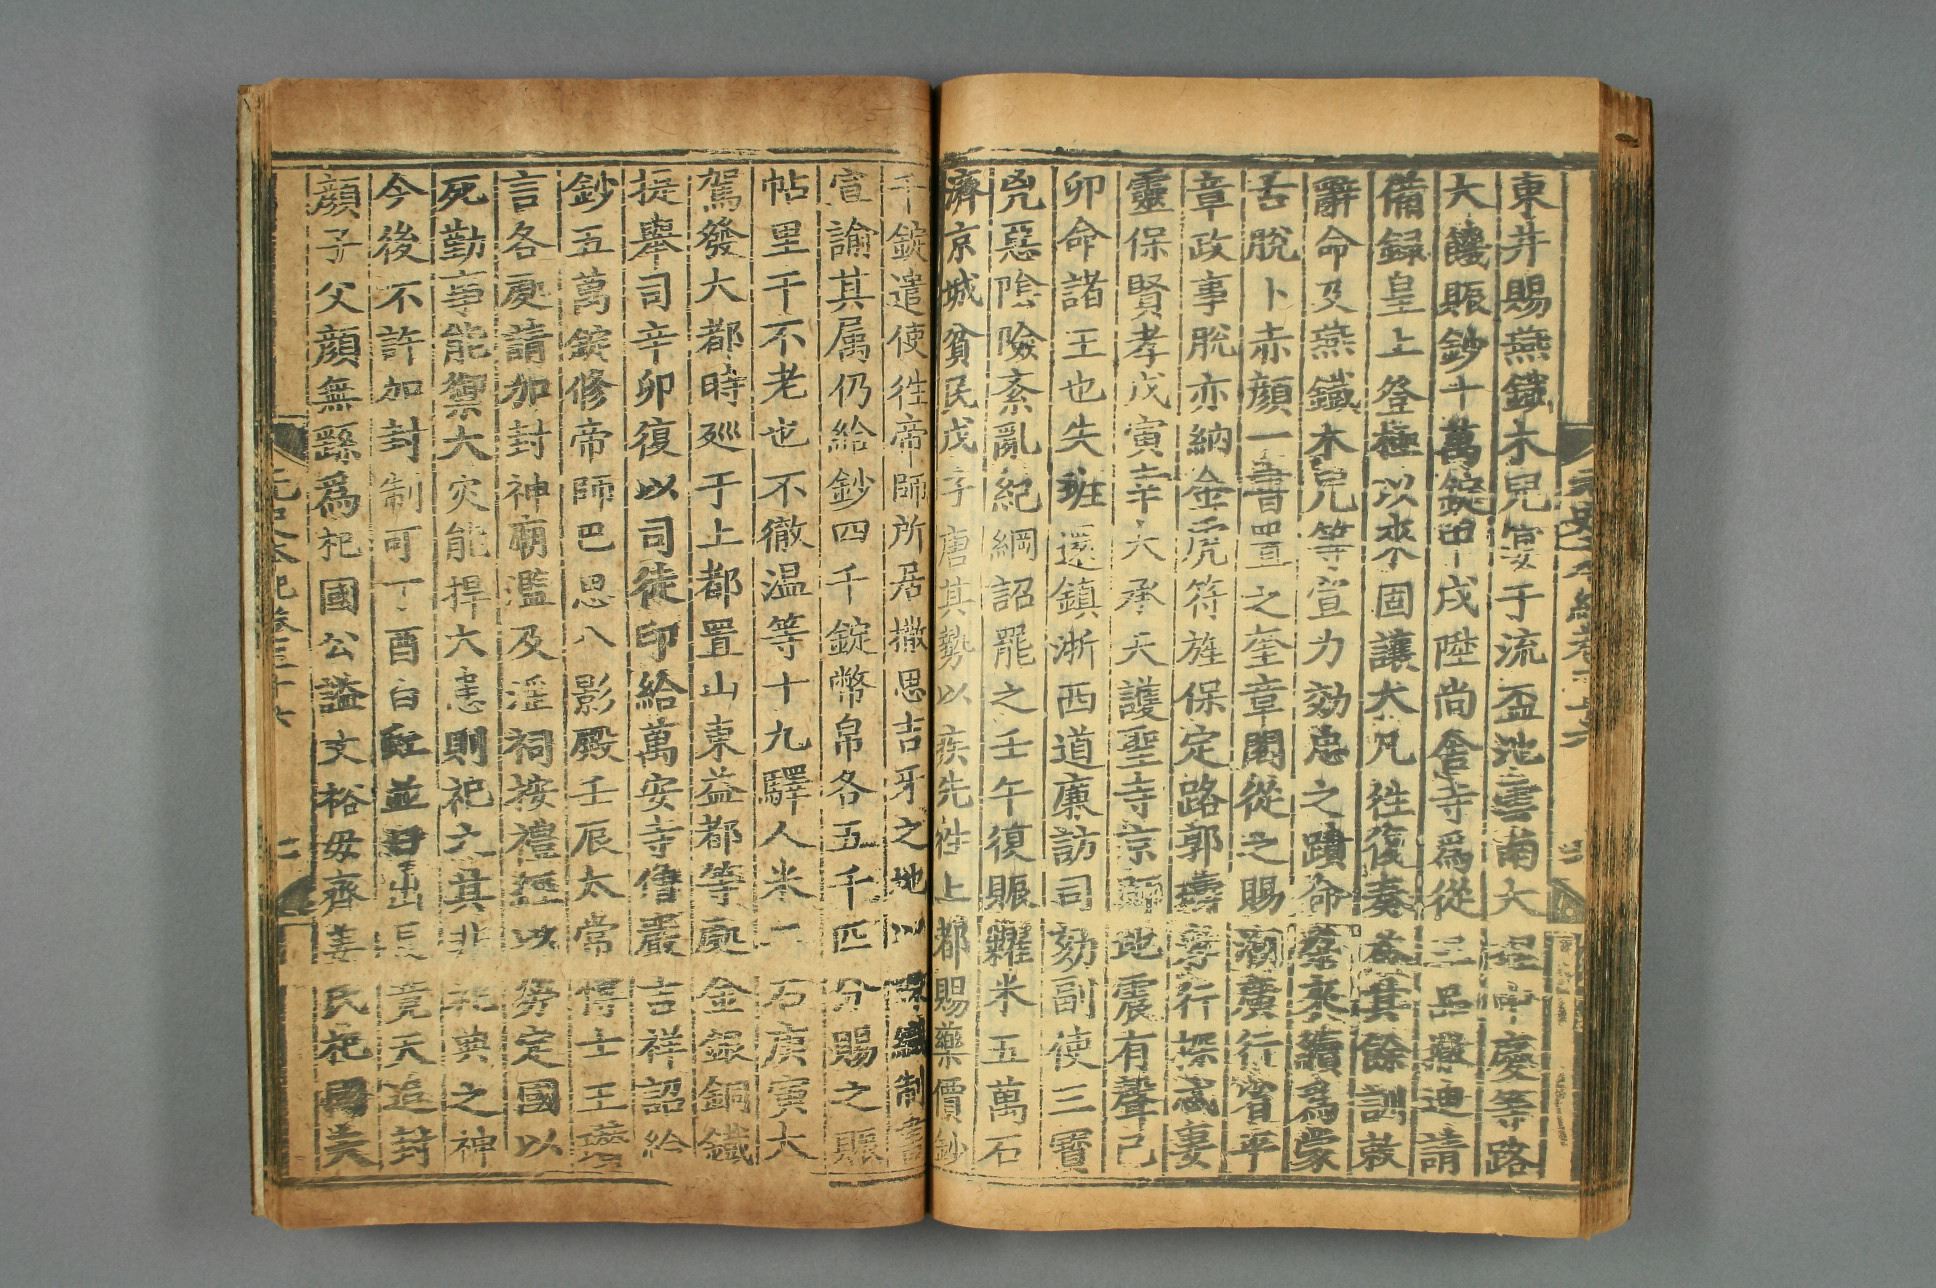 東井賜燕鐵木兒宴于流盃池雲南大理中慶等路
大饑賑鈔十萬錠甲戌陞尚舍寺爲從三品撒迪請
備録皇上登極以來固讓大凡往復奏荅其餘訓敕
辭命及燕鐵木兒等宣力効忠之蹟命朶來續爲蒙
古脫卜赤顏一書置之奎章閣從之賜湖廣行省平
章政事脫亦納金虎符旌保定路郭璹孝行探忒妻
靈保賢孝戊寅幸大承天護聖寺京師地震有聲己
卯命諸王也失班還鎮浙西道廉訪司劾副使三寶
兇惡陰險紊亂紀綱詔罷之壬午復賑糶米五萬石
濟京城貧民戊子唐其勢以疾先往上都賜藥價鈔
千錠遣使往帝師所居撒思吉牙之地以珠織制書
宣諭其屬仍給鈔四千錠幣帛各五千匹分賜之賑
帖里干不老也不徹溫等十九驛人米二石庚寅大
駕發大都時巡于上都置山東益都等處金銀銅鐵
提舉司辛卯復以司徒印給萬安寺僧嚴吉祥詔給
鈔五萬錠修帝師巴思八影殿壬辰太常博士王瓚
言各處請加封神廟濫及淫祠按禮經以勞定國以
死勤事能禦大災能捍大患則祀之其非祀典之神
今後不許加封制可丁酉白虹並日出長竟天追封
顏子父顏無繇爲杞國公謚文裕母齊姜氏杞國夫
元史本紀卷三十六